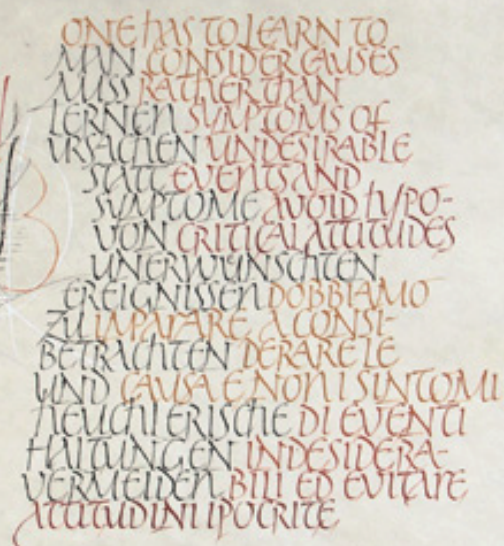 ONE HAS TO LEARN TO
MAN CONSIDER CAUSES
MUSS RATHER THAN
LERNEN SYMPTOMS OF
URSACHEN UNDESIRABLE
STATT EVENTS AND
SYMPTOME AVOID HYPO-
VON CRITICAL ATTITUDES
UNERWÜNSCHTEN
EREIGNISSEN DOBBIAMO
ZU IMPARARE A CONSI-
BETRACHTEN DERARE LE
UND CAUSA E NON I SINTOMI
HEUCHLERISCHE DI EVENTI
HALTUNGEN INDESIDERA-
VERMEIDEN BILI ED EVITARE
ATTITUDINI IPOCRITE